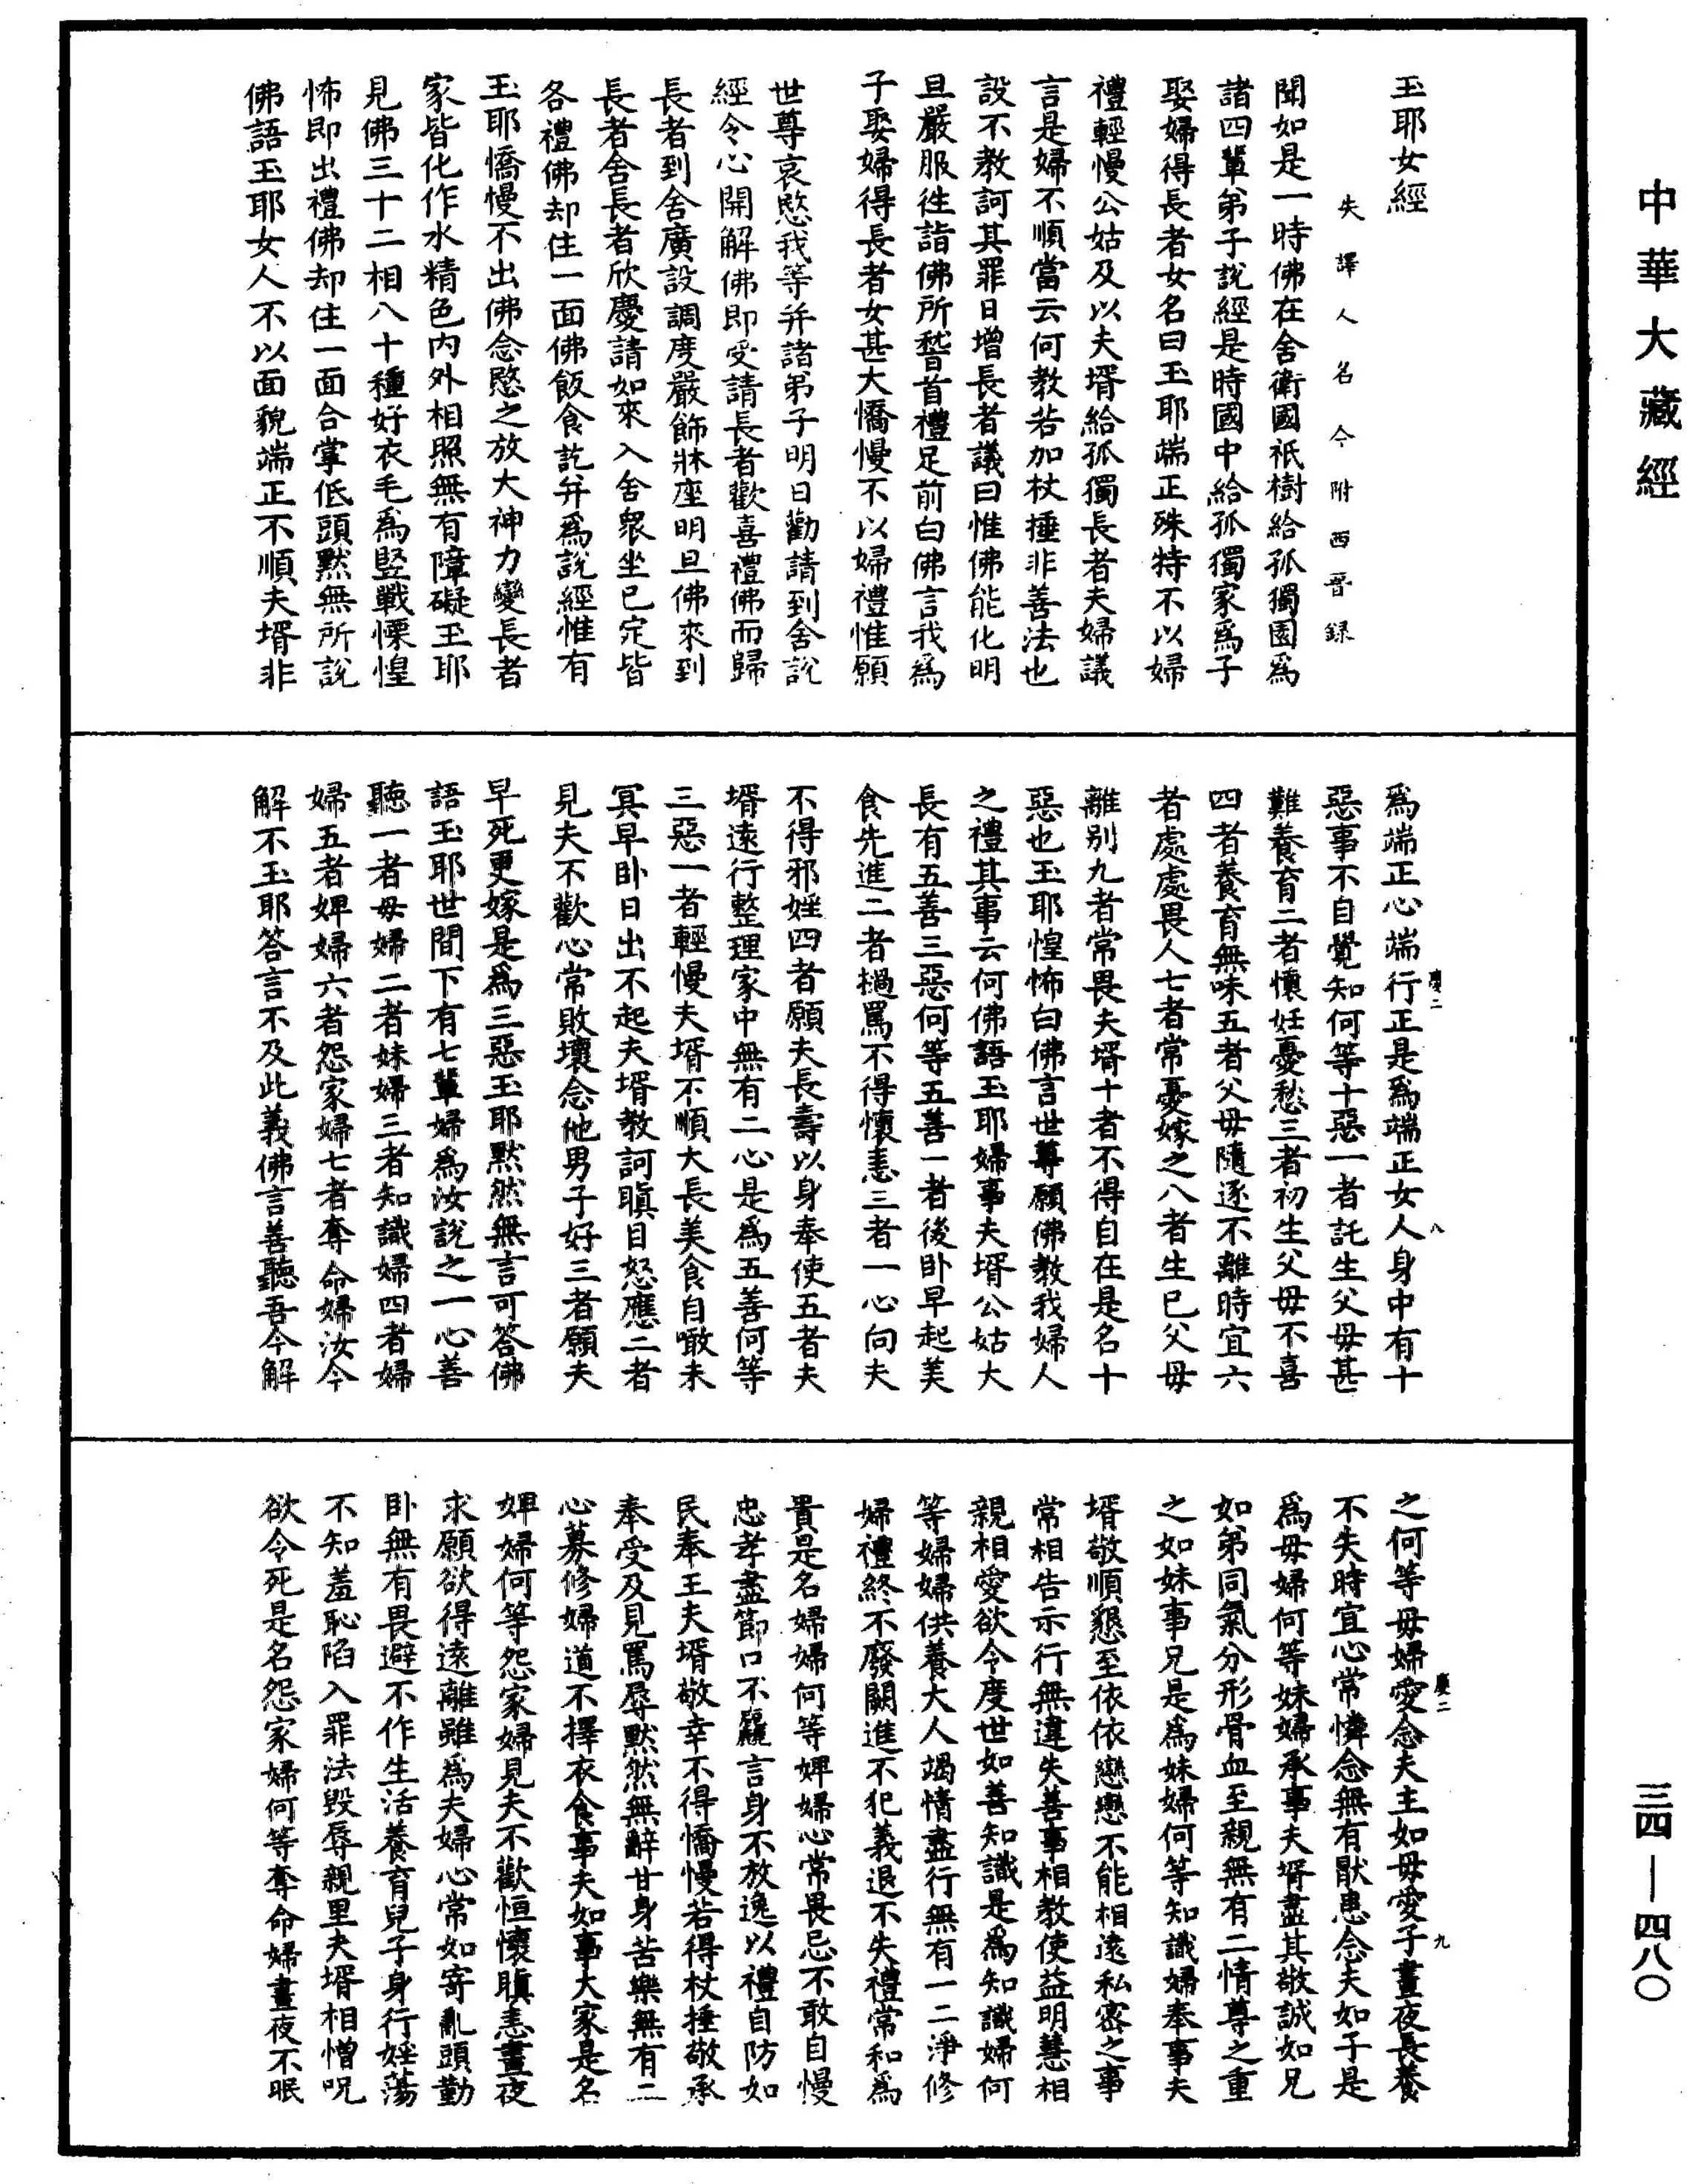 中華大藏經
玉耶女經
失譯人名今附西晉録
聞如是一時佛在舍衛國祇樹給孤獨園爲
諸四輩弟子說經是時國中給孤獨家爲子
娶婦得長者女名曰玉耶端正殊特不以婦
禮輕慢公姑及以夫壻給孤獨長者夫婦議
言是婦不順當云何教若加杖捶非善法也
設不教訶其罪日增長者議曰惟佛能化明
旦嚴服往詣佛所稽首禮足前白佛言我爲
子娶婦得長者女甚大憍慢不以婦禮惟願
世尊哀愍我等并諸弟子明日勸請到舍說
經令心開解佛即受請長者歡喜禮佛而歸
長者到舍廣設調度嚴飾牀座明旦佛來到
長者舍長者欣慶請如來入舍衆坐已定皆
各禮佛却住一面佛飯食訖并爲說經惟有
玉耶憍慢不出佛念愍之放大神力變長者
家皆化作水精色内外相照無有障礙玉耶
見佛三十二相八十種好衣毛爲豎戰慄惶
怖即出禮佛却住一面合掌低頭默無所說
佛語玉耶女人不以面貌端正不順夫壻非
爲端正心端行正是爲端正女人身中有十
惡事不自覺知何等十惡一者託生父母甚
難養育二者懷妊憂愁三者初生父母不喜
四者養育無味五者父母隨逐不離時宜六
者處處畏人七者常憂嫁之八者生已父母
離别九者常畏夫壻十者不得自在是名十
惡也玉耶惶怖白佛言世尊願佛教我婦人
之禮其事云何佛語玉耶婦事夫壻公姑大
長有五善三惡何等五善一者後卧早起美
食先進二者檛罵不得懷恚三者一心向夫
不得邪婬四者願夫長壽以身奉使五者夫
壻遠行整理家中無有二心是爲五善何等
三惡一者輕慢夫壻不順大長美食自噉未
冥早卧日出不起夫壻教訶瞋目怒應二者
見夫不歡心常敗壞念他男子好三者願夫
早死更嫁是爲三惡玉耶默然無言可答佛
語玉耶世間下有七輩婦爲汝說之一心善
聽一者母婦二者妹婦三者知識婦四者婦
婦五者婢婦六者怨家婦七者奪命婦汝今
解不玉耶答言不及此義佛言善聽吾今解
慶二
八
之何等母婦愛念夫主如母愛子晝夜長養
不失時宜心常憐念無有猒患念夫如子是
爲母婦何等妹婦承事夫壻盡其敬誠如兄
如弟同氣分形骨血至親無有二情尊之重
之如妹事兄是爲妹婦何等知識婦奉事夫
壻敬順懇至依依戀戀不能相遠私密之事
常相告示行無違失善事相教使益明慧相
親相愛欲令度世如善知識是爲知識婦何
等婦婦供養大人竭情盡行無有一二淨修
婦禮終不廢闕進不犯義退不失禮常和爲
貴是名婦婦何等婢婦心常畏忌不敢自慢
忠孝盡節口不麤言身不放逸以禮自防如
民奉王夫壻敬幸不得憍慢若得杖捶敬承
奉受及見罵辱默然無辭甘身苦樂無有二
心募修婦道不擇衣食事夫如事大家是名
婢婦何等怨家婦見夫不歡恒懷瞋恚晝夜
求願欲得遠離雖爲夫婦心常如寄亂頭勤
卧無有畏避不作生活養育兒子身行婬蕩
不知羞恥陷入罪法毀辱親里夫壻相憎呪
欲令死是名怨家婦何等奪命婦晝夜不眠
慶二
九
三四—四八〇